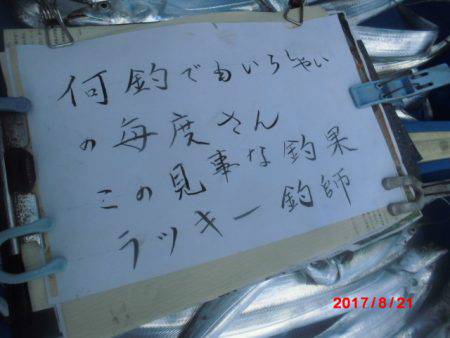 何釣でもいらしゃい
の毎度さん
この見事な釣果
ラッキー釣師
2017/8/21